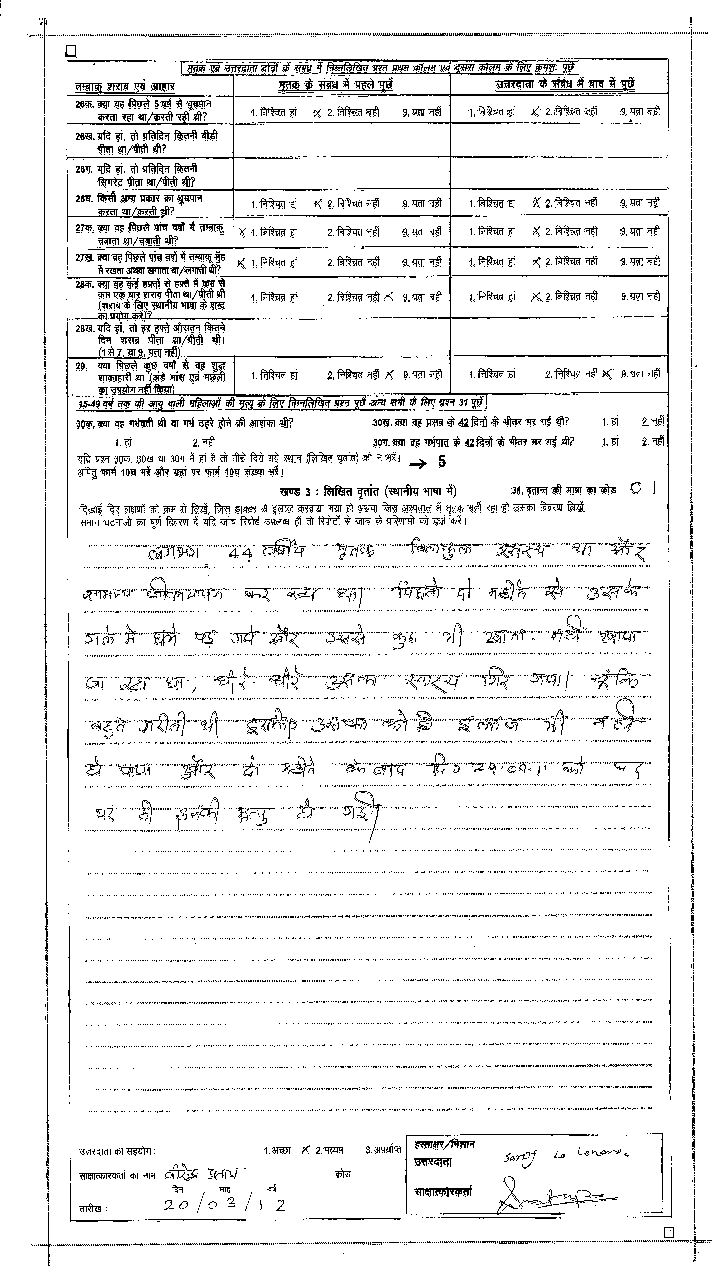 मृतक एवं उत्तरदाता दोनों के संबंध में निम्नलिखित प्रश्न प्रथम कॉलम एवं दूसरा कॉलम के लिए क्रमशः पूछें
तम्बाकू शराब एवं आहार मृतक के संबंध में पहले पूछें उत्तरदाता के संबंध में बाद में पूछें
26क. क्या वह पिछले 5 वर्ष से धूम्रपान
करता रहा था/करती रही थी? 1. निश्चित हां 2. निश्चित नहीं 9. पता नहीं 1. निश्चित हां 2. निश्चित नहीं 9. पता नहीं
26ख. यदि हां, तो प्रतिदिन कितनी बीड़ी
पीता था/पीती थी?
26ग. यदि हां, तो प्रतिदिन कितनी
सिगरेट पीता था/पीती थी?
26घ. किसी अन्य प्रकार का धूम्रपान
करता था/करती थी? 1. निश्चित हां 2. निश्चित नहीं 9. पता नहीं 1. निश्चित हां 2. निश्चित नहीं 9. पता नहीं
27क. क्या वह पिछले पांच वर्षों में तम्बाकू
चबाता था/चबाती थी? 1. निश्चित हां 2. निश्चित नहीं 9. पता नहीं 1. निश्चित हां 2. निश्चित नहीं 9. पता नहीं
27ख. क्या वह पिछले पांच वर्षों में तम्बाकू मुँह
में रखता अथवा लगाता था/लगाती थी? 1. निश्चित हां 2. निश्चित नहीं 9. पता नहीं 1. निश्चित हां 2. निश्चित नहीं 9. पता नहीं
28क. क्या वह कई हफ्तों से हफ्ते में कम से
कम एक बार शराब पीता था/पीती थी
(शराब के लिए स्थानीय भाषा के शब्द
का प्रयोग करें)? 1. निश्चित हां 2. निश्चित नहीं 9. पता नहीं 1. निश्चित हां 2. निश्चित नहीं 9. पता नहीं
28ख. यदि हां, तो हर हफ्ते औसतन कितने
दिन शराब पीता था/पीती थी।
(1 से 7, या 9. पता नहीं)
29. क्या पिछले कुछ वर्षों से वह शुद्ध
शाकाहारी था (अंडे मांस एवं मछली
का उपयोग नहीं किया) 1. निश्चित हां 2. निश्चित नहीं 9. पता नहीं 1. निश्चित हां 2. निश्चित नहीं 9. पता नहीं
15-49 वर्ष तक की आयु वाली महिलाओं की मृत्यु के लिए निम्नलिखित प्रश्न पूछें अन्य सभी के लिए प्रश्न 31 पूछें
30क. क्या वह गर्भवती थी या गर्भ ठहरे होने की आशंका थी? 30ख. क्या वह प्रसव के 42 दिनों के भीतर मर गई थी? 1. हां 2. नहीं
1. हां 2. नहीं 30ग. क्या वह गर्भपात के 42 दिनों के भीतर मर गई थी? 1. हां 2. नहीं
यदि प्रश्न 30क, 30ख या 30ग में हां है तो नीचे दिये गये स्थान (लिखित वृत्तांत) को न भरें।
अपितु फार्म 10घ भरें और यहां पर फार्म 10घ संख्या भरें। → 5
खण्ड 3 : लिखित वृत्तांत (स्थानीय भाषा में) 31. वृत्तान्त की भाषा का कोड 0 1
दिखाई दिए लक्षणों को क्रम से लिखें, जिस डाक्टर से इलाज करवाया गया हो अथवा जिस अस्पताल में मृतक भर्ती रहा हो उसका विवरण लिखें,
समान घटनाओं का पूर्ण विवरण दें यदि जांच रिपोर्ट उपलब्ध हों तो रिपोर्टों से जांच के परिणामों को दर्ज करें।
लगभग 44 वर्षीय मृतक बिलकुल स्वस्थ था और
सामान्य जीवनयापन कर रहा था। पिछले दो महीने से उसके
गले में छाले पड़ गये और उससे कुछ भी खाना नहीं खाया
जा रहा था, धीरे धीरे उसका स्वास्थ्य गिर गया। चूंकि
बहुत गरीबी थी इसलिए उसका कोई इलाज भी नहीं
हो पाया और दो महीने के बाद दि0 को घर
पर ही उनकी मृत्यु हो गयी।
उत्तरदाता का सहयोग : 1. अच्छा 2. मध्यम 3. अपर्याप्त
साक्षात्कारकर्ता का नाम वीरेन्द्र प्रताप कोड
दिन माह वर्ष
तारीख : 20/03/12
हस्ताक्षर/निशान
उत्तरदाता
साक्षात्कारकर्ता